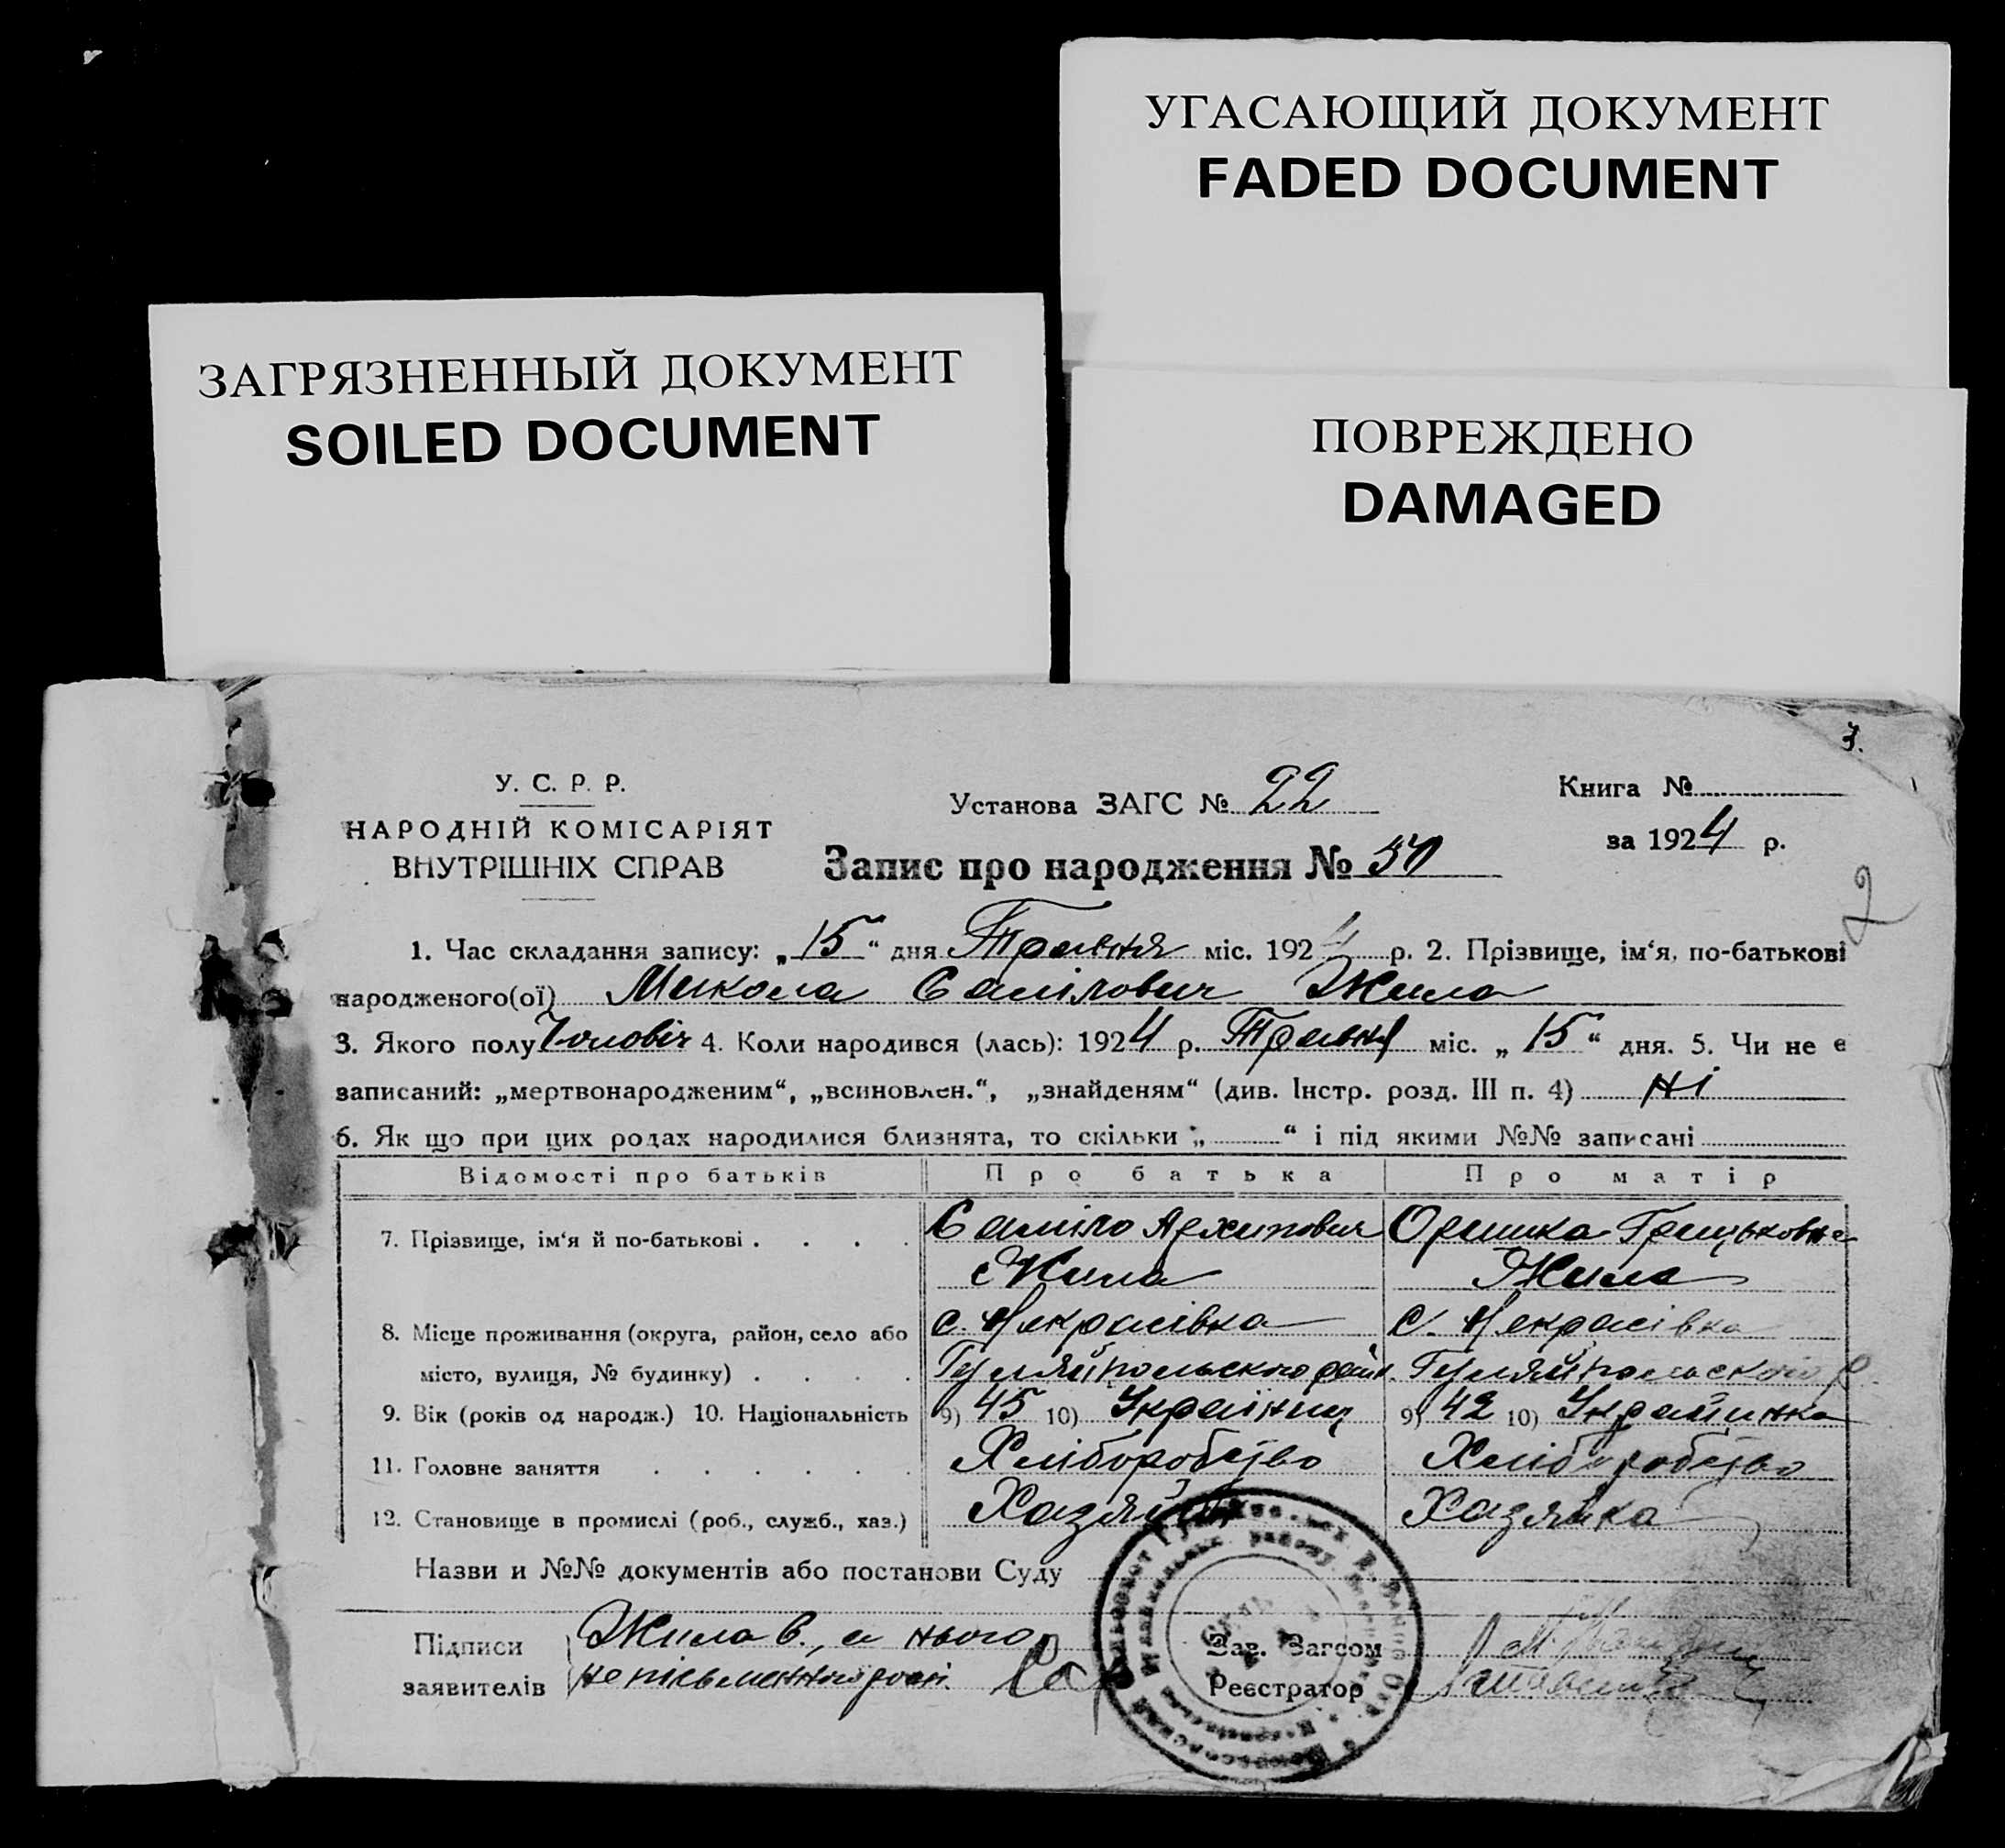 УГАСАЮЩИЙ ДОКУМЕНТ
FADED DOCUMENT
ЗАГРЯЗНЕННЫЙ ДОКУМЕНТ
SOILED DOCUMENT
ПОВРЕЖДЕНО
DAMAGED
У. С. Р. Р.
НАРОДНІЙ КОМІСАРІЯТ
ВНУТРІШНІХ СПРАВ
Установа ЗАГС № 22
Запис про народження №
Книга №
за 1924 р.
2
1. Час складання запису: „15“ дня Травня міс. 1924 р. 2. Прізвище, ім‘я, по-батькові
народженого(ої) Микола Самілович Жила
3. Якого полу Чоловіч 4. Коли народився (лась): 1924 р. Травня міс. „15“ дня. 5. Чи не є
записаний: „мертвонародженим“, „всиновлен.“, „знайденям“ (див. Інстр. розд. III п. 4) ні
6. Як що при цих родах народилися близнята, то скільки „ “ і під якими №№ записані
Відомості про батьків Про батька Про матір
7. Прізвище, ім‘я й по-батькові . . . . Саміло Архипович Жила Оришка Грицьковна Жила
8. Місце проживання (округа, район, село або с. Некрасівка с. Некрасівка
місто, вулиця, № будинку) . . . . Гуляйпольского район. Гуляйпольского р.
9. Вік (років од народж.) 10. Національність 9) 45 10) Українець 9) 42 10) Украйинка
11. Головне заняття . . . . . . Хліборобство Хліборобство
12. Становище в промислі (роб., служб., хаз.) Хазяйін Хазяйка
Назви и №№ документів або постанови Суду
Підписи Жила С., а нього
заявителів непісьменного росп.
Зав. Загсом
Реєстратор